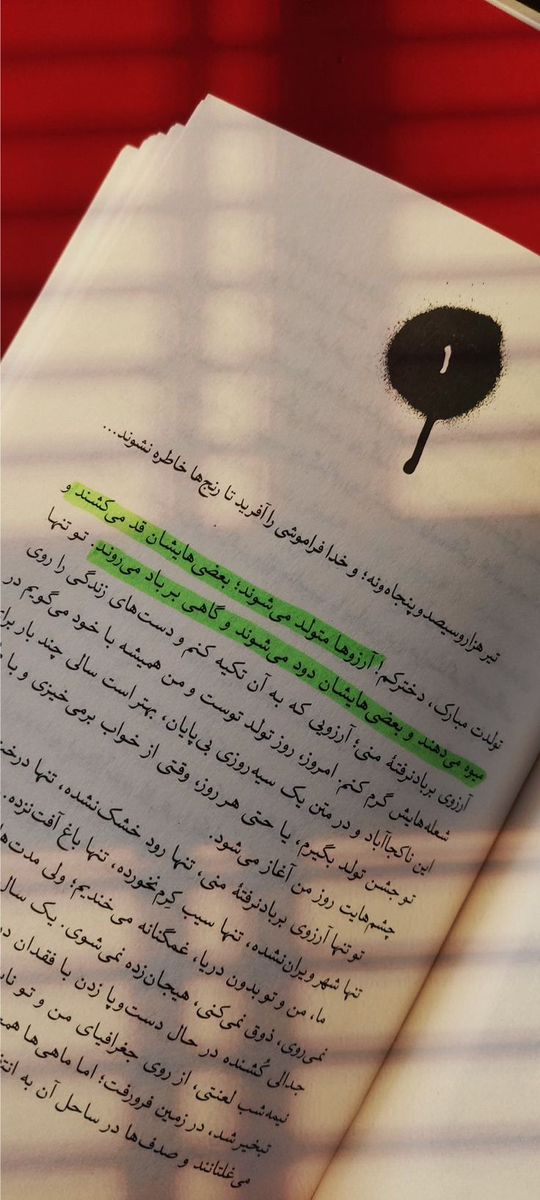 ۱
تیر هزاروسیصدوپنجاه‌ونه؛ و خدا فراموشی را آفرید تا رنج‌ها خاطره نشوند...
تولدت مبارک، دخترکم! آرزوها متولد می‌شوند؛ بعضی‌هایشان قد می‌کشند و
میوه می‌دهند و بعضی‌هایشان دود می‌شوند و گاهی بر باد می‌روند. تو تنها
آرزوی بربادنرفتهٔ منی؛ آرزویی که به آن تکیه کنم و دست‌های زندگی را روی
شعله‌هایش گرم کنم. امروز، روز تولد توست و من همیشه با خود می‌گویم در
این ناکجاآباد و در متن یک سیه‌روزی بی‌پایان، بهتر است سالی چند بار برای
تو جشن تولد بگیرم، یا حتی هر روز، وقتی از خواب برمی‌خیزی و با
چشم‌هایت روز من آغاز می‌شود.
تو تنها آرزوی بربادنرفتهٔ منی، تنها رود خشک‌نشده، تنها
تنها شهر ویران‌نشده، تنها سیب کرم‌نخورده، تنها باغ آفت‌نزده.
ما، من و تو بدون دریا، غمگنانه می‌خندیم؛ ولی
نمی‌روی، ذوق نمی‌کنی، هیجان‌زده نمی‌شوی. یک سال
جدالی کُشنده در حال دست‌وپا زدن با فقدان
نیمه‌شب لعنتی، از روی جغرافیای من و تو
تبخیر شد، در زمین فرورفت؛ اما ماهی‌ها
می‌غلتانند و صدف‌ها در ساحل آن به